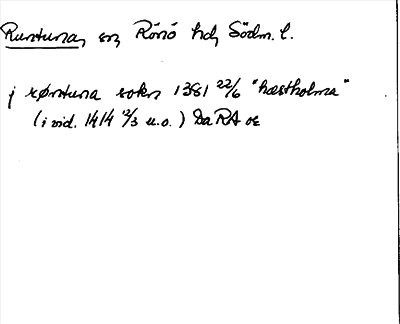 Runtuna, sn, Rönö hd, Södm. l.
j røntuna sokn 1381 22/6 "hæstholma"
(i vid. 1414 12/3 u.o.) Da RA or